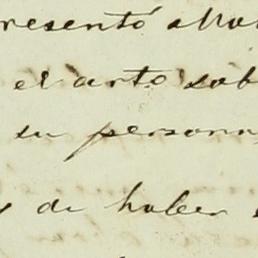 resentó
el arto sob
su persona
de haber